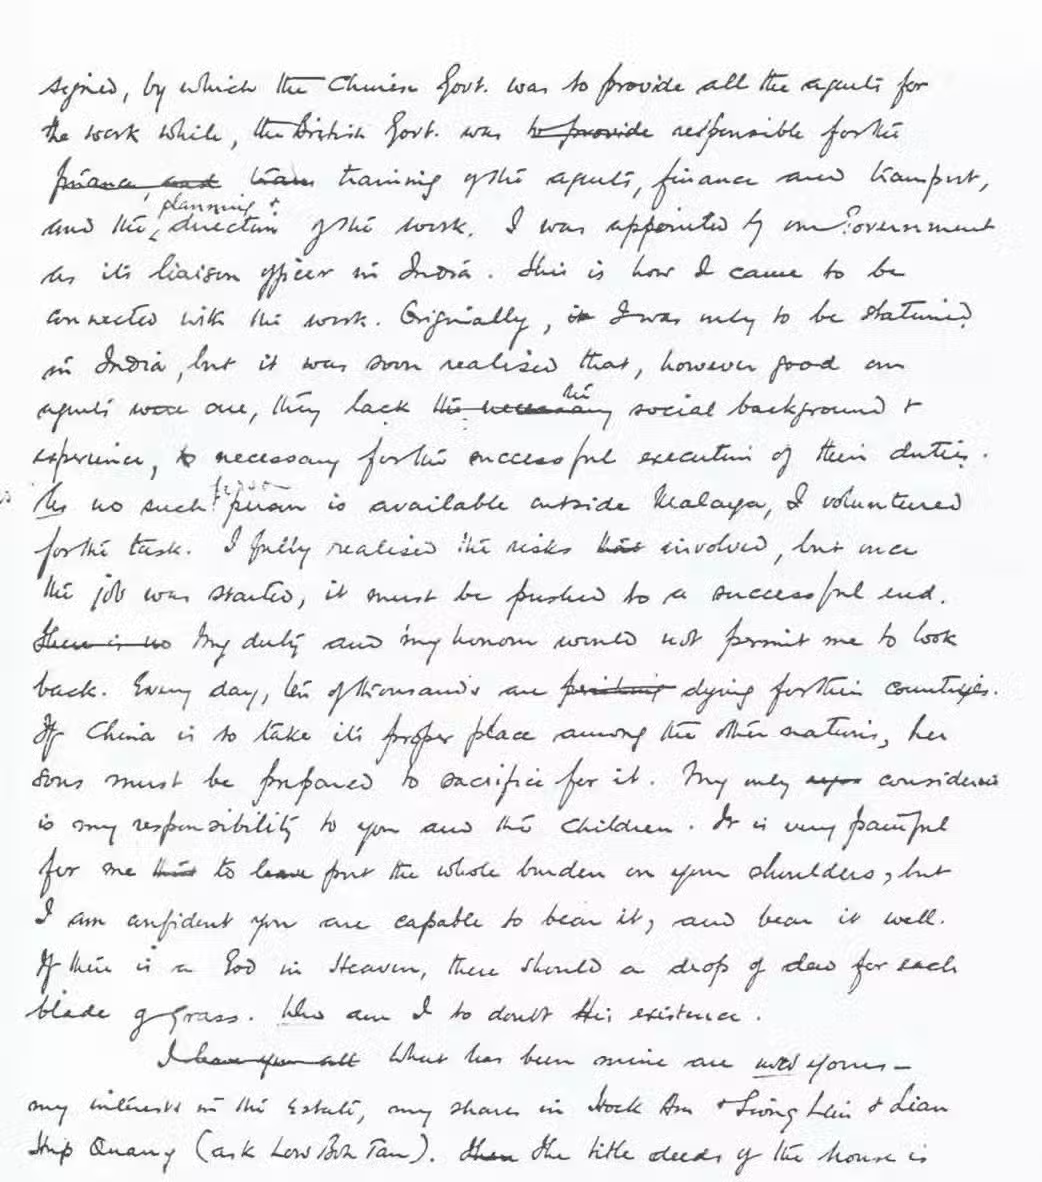 signed, by which the Chinese Govt. was to provide all the agents for
the work while, the British Govt. was to provide responsible for the
finance, and trans training of the agents, finance and transport,
and the planning & direction of the work. I was appointed by our Government
as its liaison officer in India. This is how I came to be
connected with the work. Originally, it I was only to be stationed
in India, but it was soon realised that, however good our
agents were are, they lack the necessary the social background &
experience, so necessary for the successful execution of their duties.
As no such person person is available outside Malaya, I volunteered
for the task. I fully realised the risks that involved, but once
the job was started, it must be pushed to a successful end.
There is no My duty and my honour would not permit me to look
back. Every day, ten of thousands are perishing dying for their countries.
If China is to take its proper place among the other nations, her
sons must be prepared to sacrifice for it. My only considera
is my responsibility to you and the children. It is very painful
for me that to leave put the whole burden on your shoulders, but
I am confident you are capable to bear it, and bear it well.
If there is a God in Heaven, there should a drop of dew for each
blade of grass. Who am I to doubt His existence.
I leave you all What has been mine are now yours –
my interests in the Estate, my shares in Hock Ann & Siong Lein & Lian
Hup Quang (ask Low Boh Tan). Then The title deeds of the house is